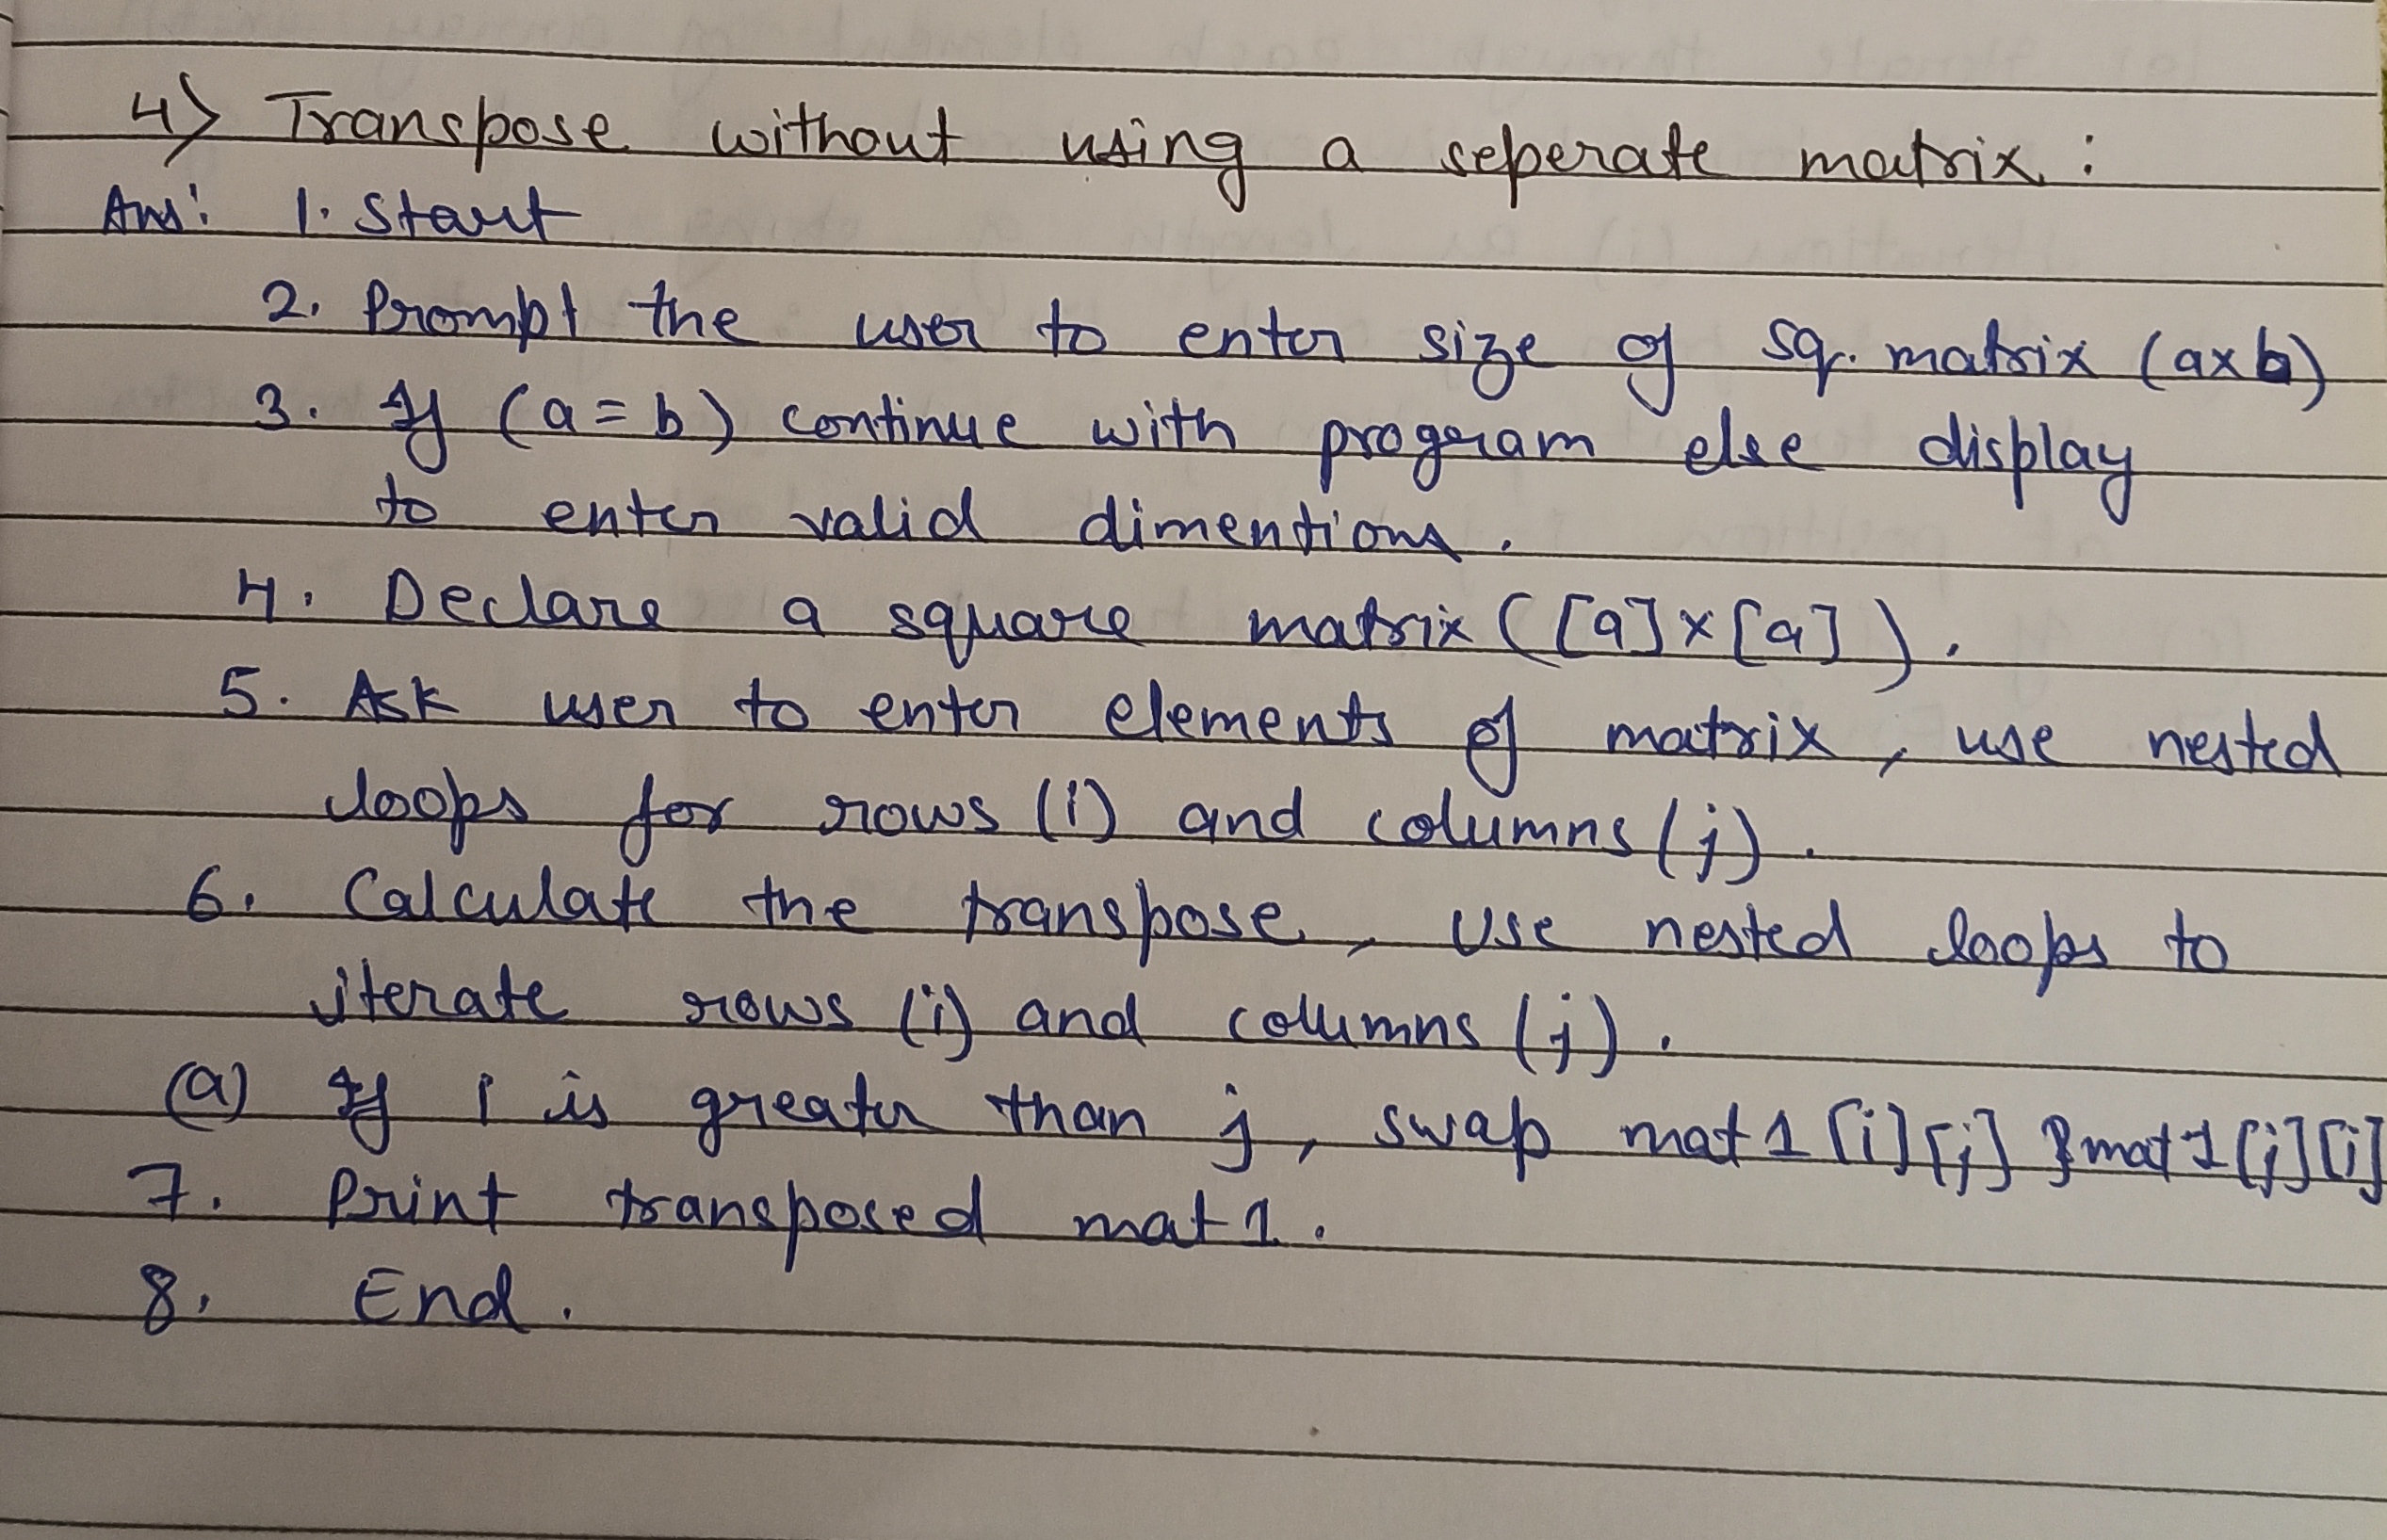 4) Transpose without using a seperate matrix :
Ans: 1. Start
2. Prompt the user to enter size of sq. matrix (axb)
3. If (a = b) continue with program else display
to enter valid dimentions.
4. Declare a square matrix ([a]x[a]).
5. Ask user to enter elements of matrix, use nested
loops for rows (i) and columns (j).
6. Calculate the transpose, use nested loops to
iterate rows (i) and columns (j).
(a) If i is greater than j, swap mat1[i][j] & mat1[j][i]
7. Print transposed mat1.
8. End.